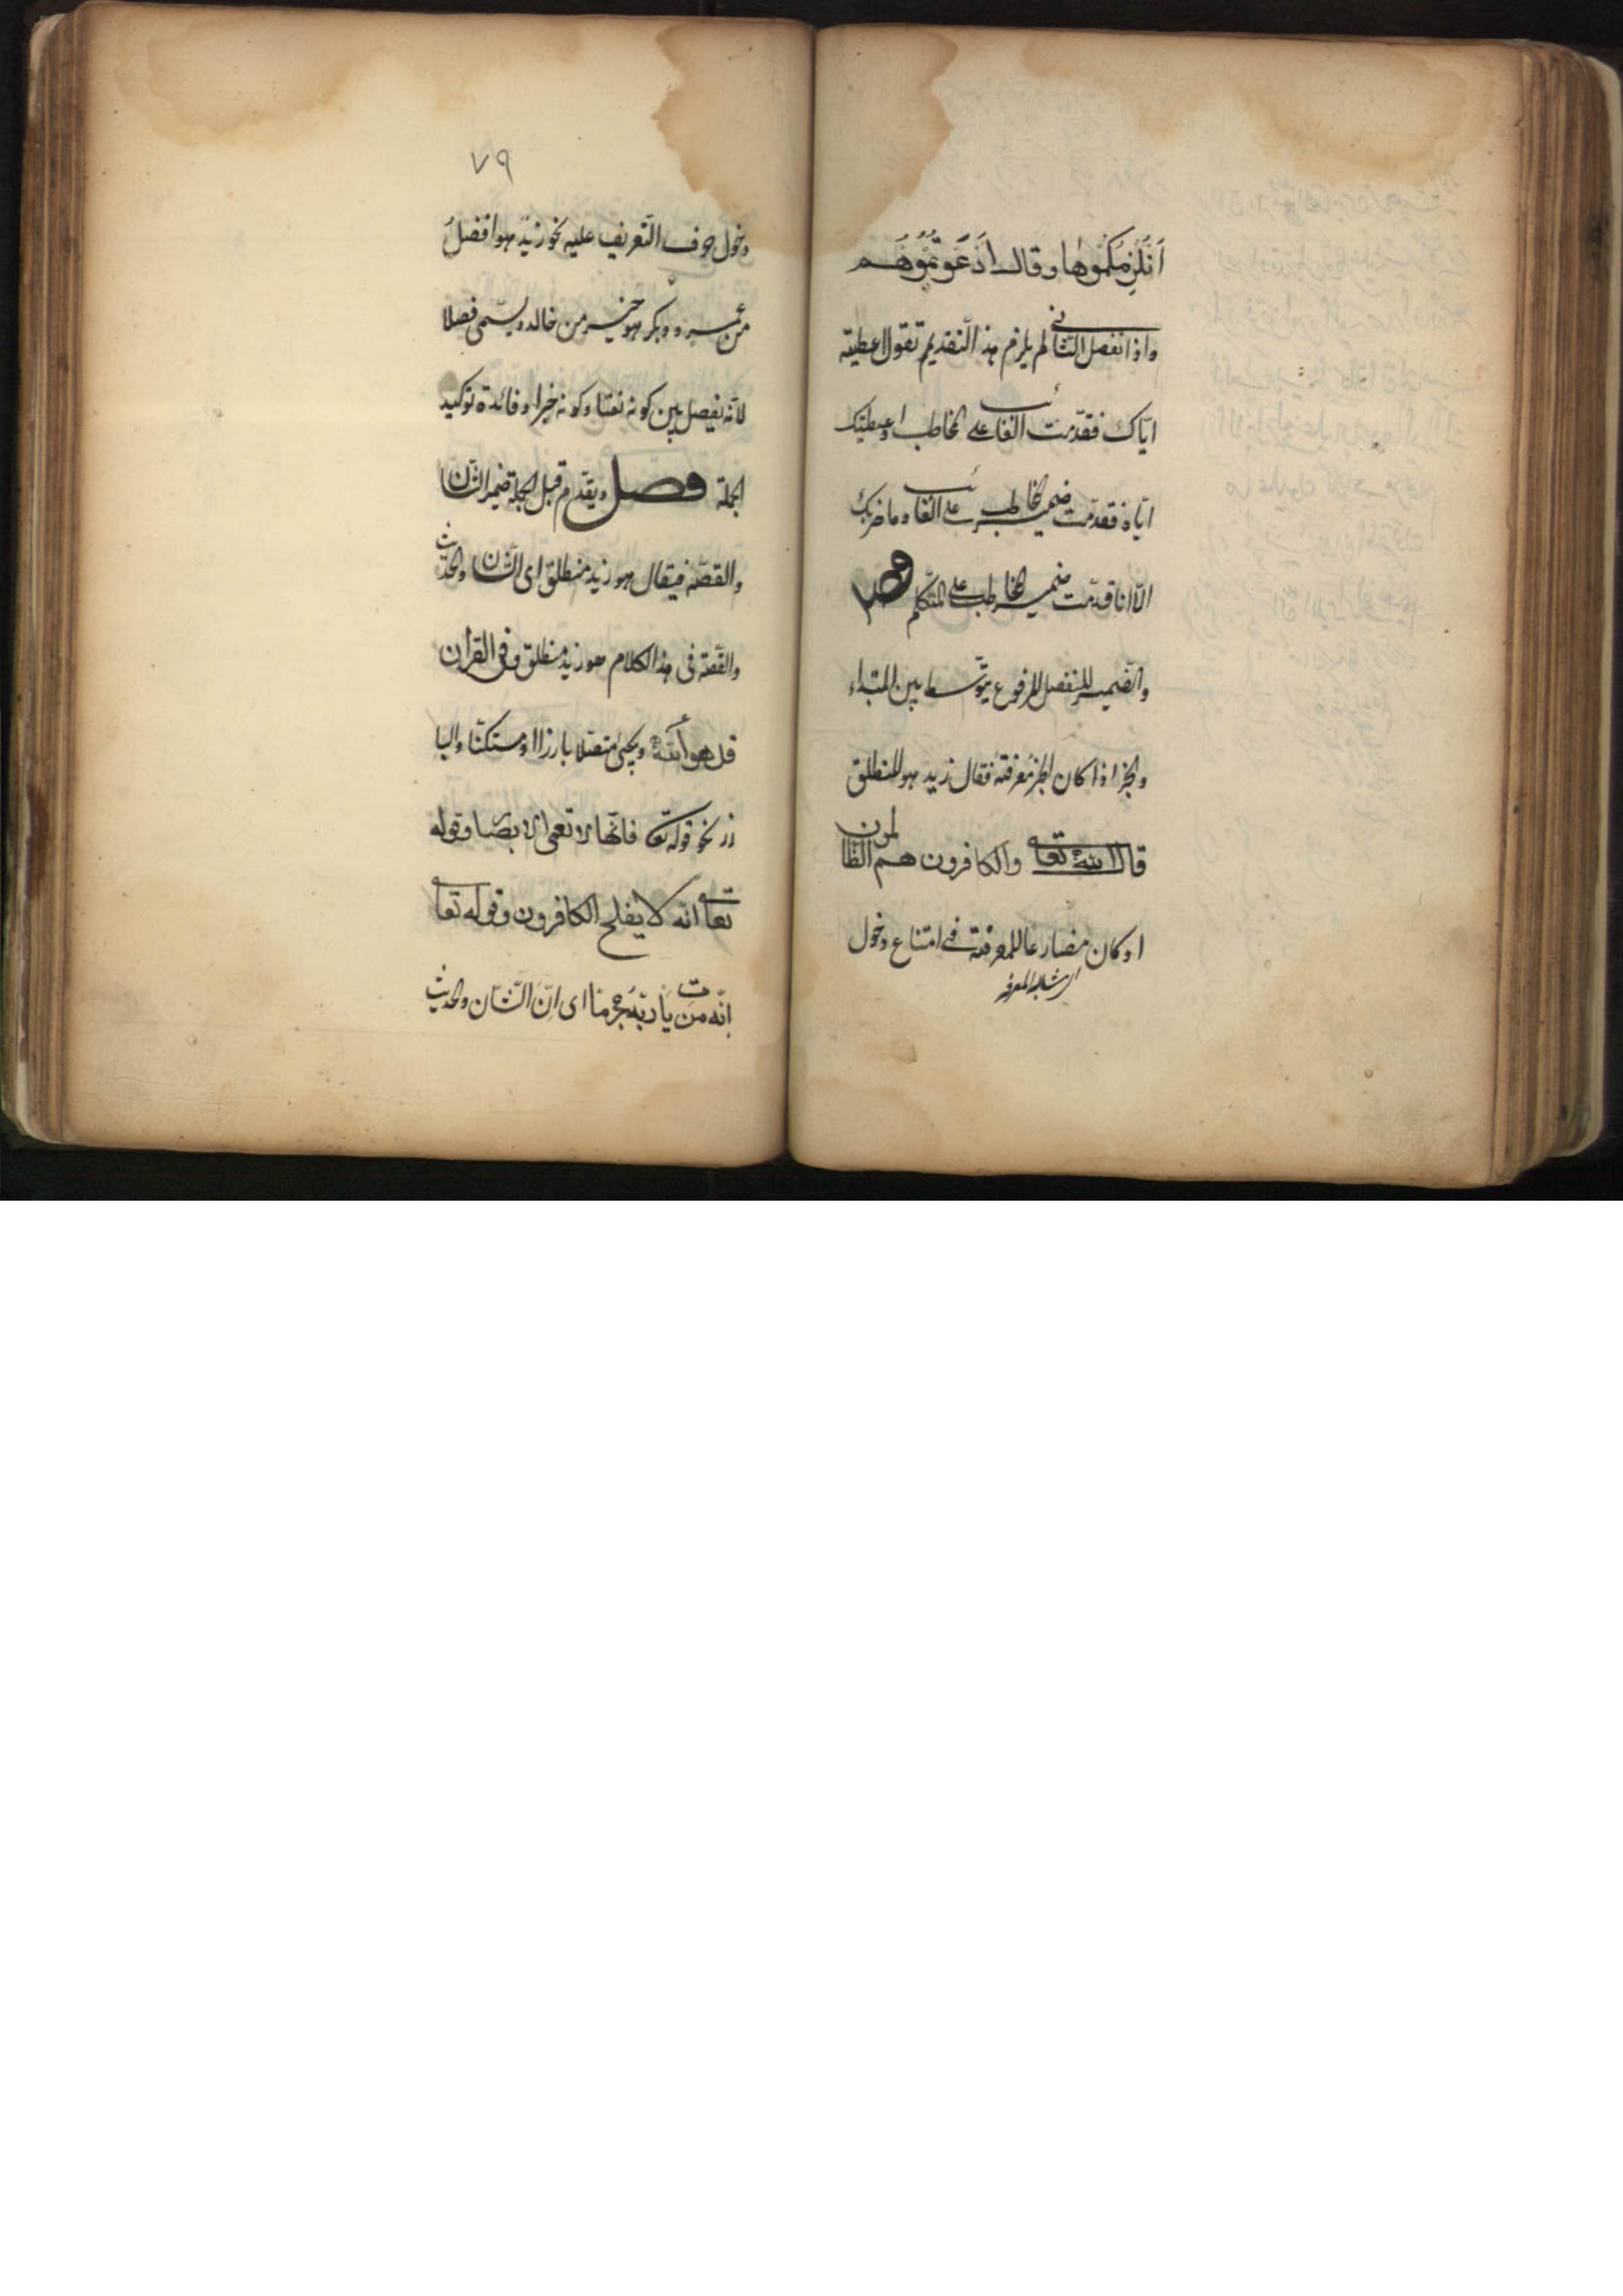 اَنُلْزِمُكُمُوها وقال اَدَعَوْتُمُوهُم
واذا انفصل الثانى لم يلزم هذا التقديم تقول اعطيته
ايّاك فقدّمت الغائب على المخاطب واعطيتك
ايّاه فقدّمت ضمير المخاطب على الغائب وما ضربك
الّا انا قدّمت ضمير المخاطب على المتكلم فصل
والضمير المنفصل المرفوع يتوسّط بين المبتداء
والخبر اذا كان الخبر معرفة فقال زيد هو المنطلق
قال الله تعالى والكافرون هم الظالمون
او كان مضارعا للمعرفة فى امتناع دخول
اى مشابه المعرفة
٧٩
دخول حرف التعريف عليه نحو زيد هو افضلُ
من عمرو وبكر هو خير من خالد ويسمّى فصلا
لانّه يفصل بين كونه نعتا وكونه خبرا وفائدة توكيد
الجملة فصل ويقدّم قبل الجملة ضمير الشّان
والقصّة فيقال هو زيد منطلق اى الشّان والحديث
والقصّة فى هذا الكلام هو زيد منطلق وفى القران
قل هو الله ويجئ متصلا بارزا او مستكنّا والبا
رز نحو قوله تعا فانّها لا تعمى الابصار وقوله
تعالى انّه لا يفلح الكافرون وقوله تعالى
انّه من يأت ربّه مجرما اى انّ الشّان والحديث